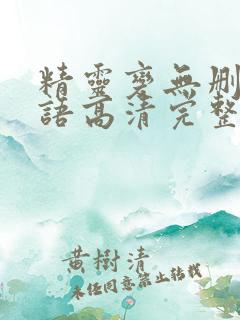 精靈變無删
語高清完整
黄樹清
未经同意禁止转载